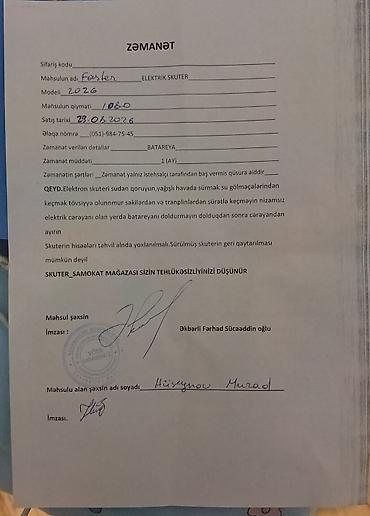 ZƏMANƏT
Sifariş kodu
Məhsulun adı Faster ELEKTRİK SKUTER
Modeli 2026
Məhsulun qiyməti 1080
Satış tarixi 29.08.2026
Əlaqə nömrə (051)-984-75-45
Zəmanət verilən detallar BATAREYA
Zəmanət müddəti 1 (AY)
Zəmanətin şərtləri Zəmanət yalnız istehsalçı tərəfindən baş vermiş qüsura aiddir
QEYD.Elektron skuteri sudan qoruyun,yağışlı havada sürmək su gölməçələrindən
keçmək tövsiyyə olunmur səkilərdən və tranplinlərdən sürətlə keçməyin nizamsız
elektrik cərəyanı olan yerdə batareyanı doldurmayın dolduqdan sonra cərəyandan
ayırın
Skuterin hissələri təhvil alında yoxlanılmalı.Sürülmüş skuterin geri qaytarılması
mümkün deyil
SKUTER_SAMOKAT MAĞAZASI SİZİN TEHLÜKƏSİZLİYİNİZİ DÜŞÜNÜR
Məhsul şəxsin
İmzası : Əkbərli Fərhad Sücəəddin oğlu
Məhsulu alan şəxsin adı soyadı Hüseynov Murad
İmzası.